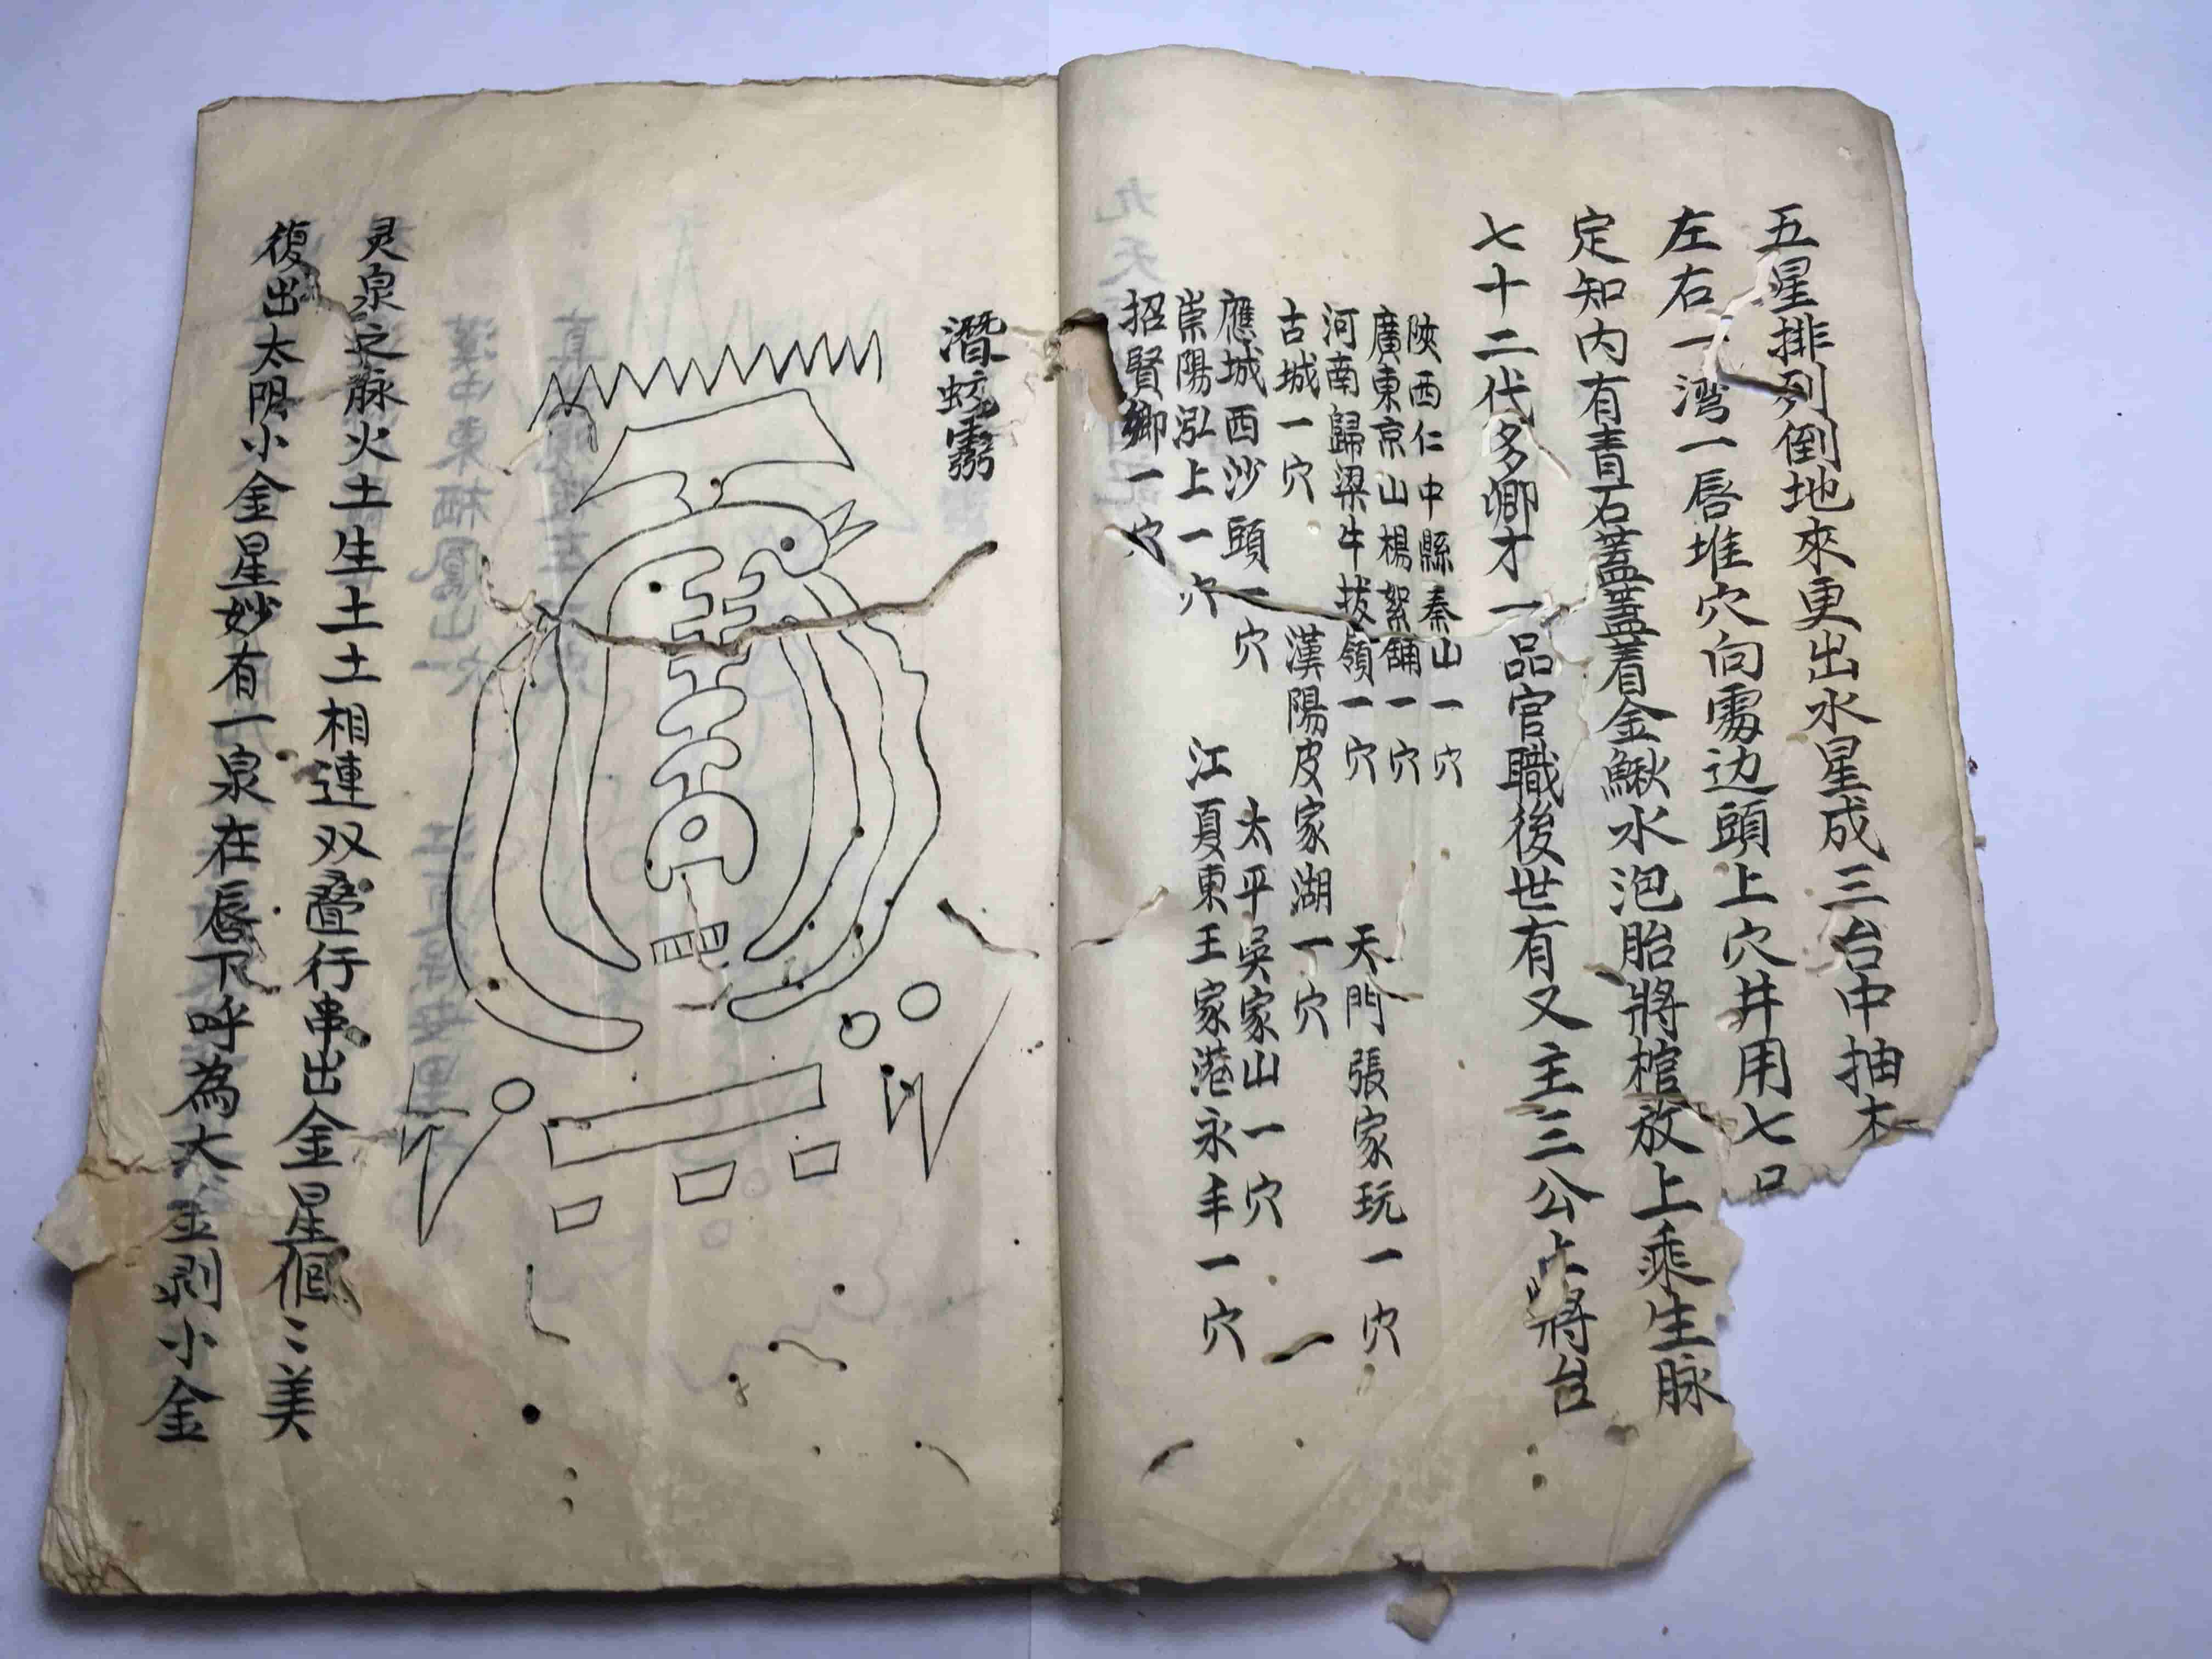 五星排列倒地來更出水星成三台中抽木
左右一湾一唇堆穴向處边頭上穴井用七口
定知內有青石蓋蓋着金鰍水泡胎將棺放上乘生脉
七十二代多卿才一品官職後世有又主三公上將台
陝西仁中縣秦山一穴
廣東京山楊絮舖一穴
河南歸梁牛拔嶺一穴
天門張家玩一穴
古城一穴
漢陽皮家湖一穴
應城西沙頭一穴
太平吳家山一穴
崇陽泓上一穴
江夏東王家港永丰一穴
招賢鄉一穴
潛蛟
灵泉之脉火土生土土相連双叠行串出金星個〻美
復出太阴小金星妙有一泉在唇下呼為大金剥小金